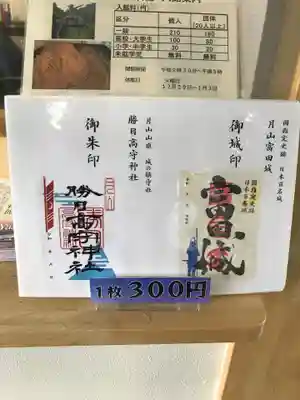 入館料(円)
区分 個人 団体(20人以上)
一般 210 160
高校・大学生 100 80
小学・中学生 50 30
未就学児 無料 無料
12月29日~1月3日
国指定史跡 日本百名城
月山富田城
御城印
月山山頂 城の鎮守社
勝日高守神社
御朱印
国指定史跡
日本百名城
富田城
勝日高守神社
1枚300円